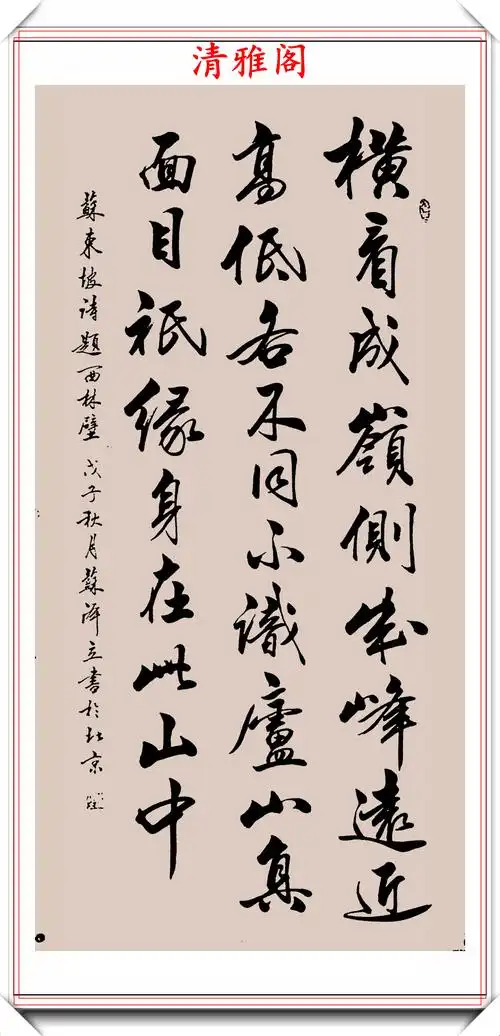 清雅阁
橫看成嶺側成峰遠近
高低各不同不識廬山真
面目祇緣身在此山中
蘇東坡詩題西林壁 戊子秋月蘇澤立書於北京